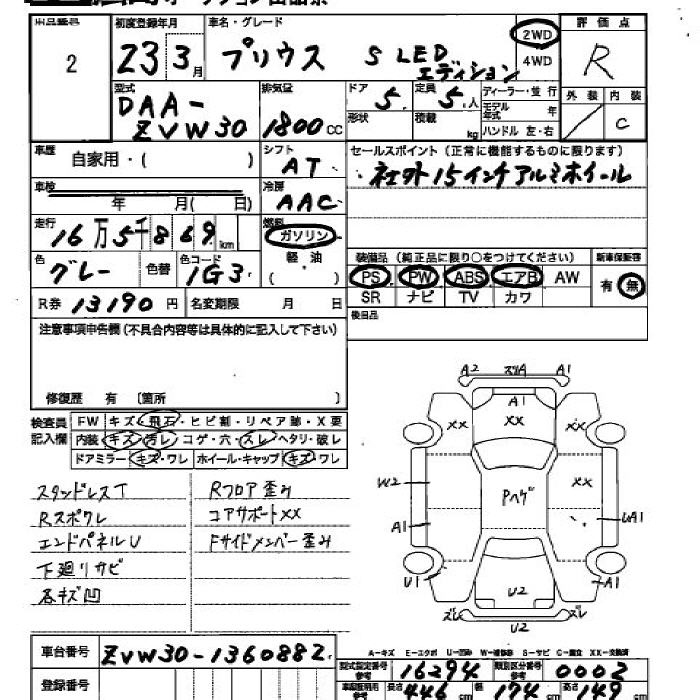 出品番号 初度登録年月 車名・グレード 2WD 評価点
2 23 3月 プリウス S LED エディション 4WD R
型式 排気量 ドア 定員 ディーラー・並行 外装 内装
DAA-ZVW30 1800cc 5 5人 モデル年式 年 / C
形状 積載 kg ハンドル 左・右
車歴 シフト セールスポイント(正常に機能するものに限ります)
自家用・( ) AT ・社外15インチアルミホイール
車検 年 月( 日) 冷房 AAC
走行 燃料
16万5千869km ガソリン
色 色替 カラーコード 軽油 装備品(純正品に限り○をつけてください) 新車保証書
グレー 1G3 ( ) PS PW ABS エアB AW 有・無
R券 13190円 名変期限 月 日 SR ナビ TV カワ
注意事項申告欄(不具合内容等は具体的に記入して下さい) 後日品
修復歴 有 〔箇所 〕
検査員 FW キズ・飛石・ヒビ割・リペア跡・X要
記入欄 内装 キズ・汚レ・コゲ・穴・スレ・ヘタリ・破レ
ドアミラー キズ・ワレ ホイール・キャップ キズ・ワレ
スタッドレスT Rフロア歪み
Rスポワレ コアサポートXX
エンドパネルU Fサイドメンバー歪み
下廻リサビ
各キズ凹
A2 スリA A1
A1
XX XX XX
W2 Pヘゲ XX
A1 UA1
U1 U2 A1
ズレ U2 ズレ
A-キズ E-エクボ U-凹み W-補修跡 S-サビ C-腐蝕 XX-交換済
車台番号 ZVW30-1360882
型式指定番号 参考 16294 類別区分番号 参考 0002
登録番号 長さ 446cm 幅 174cm 高さ 149cm